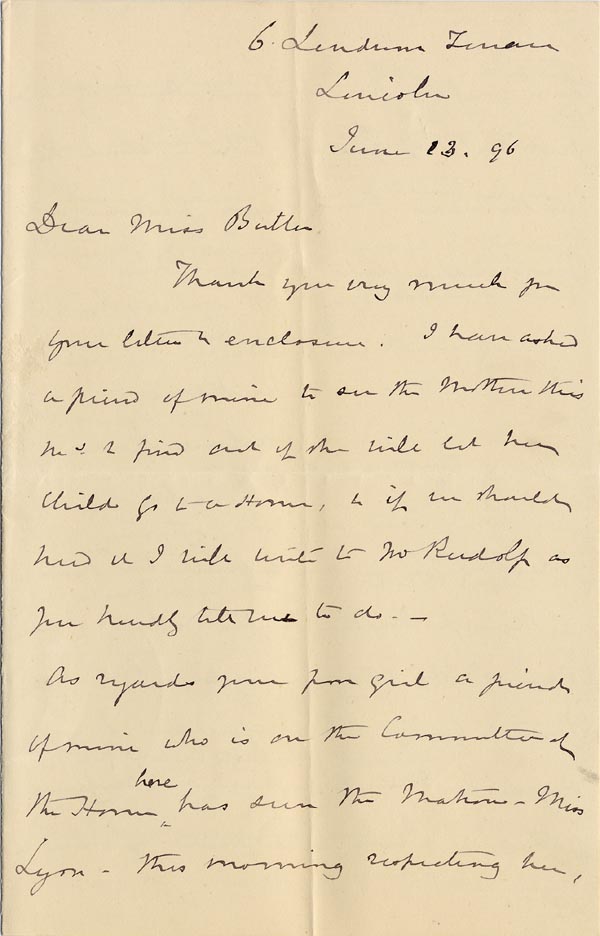 6. Lindum Terrace
Lincoln
June 13. 96
Dear Miss Butler.
Thank you very much for
your letter & enclosure. I have asked
a friend of mine to see the Mother this
& find out if she will let her
child go to a Home, & if we should
need it I will write to Mr Rudolf as
you kindly tell me to do. —
As regards your poor girl a friend
of mine who is on the Committee of
the Home here has seen the Matron - Miss
Lyon - this morning respecting her,